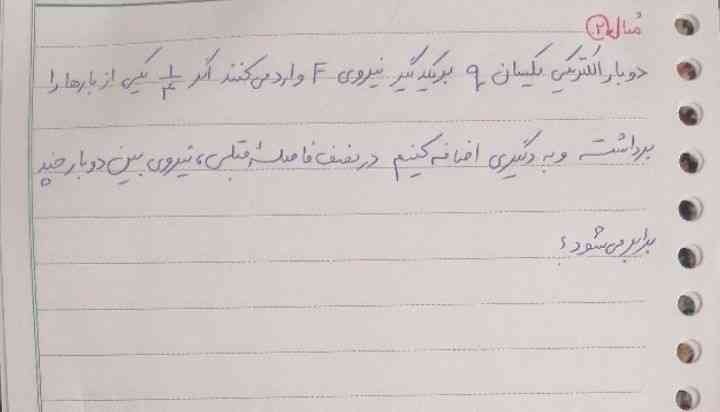 مثال ۲
دو بار الکتریکی یکسان q بر یکدیگر نیروی F وارد می‌کنند اگر ۱/۴ یکی از بارها را
برداشته و به دیگری اضافه کنیم در نصف فاصلهٔ قبلی، نیروی بین دو بار چند
برابر می‌شود؟